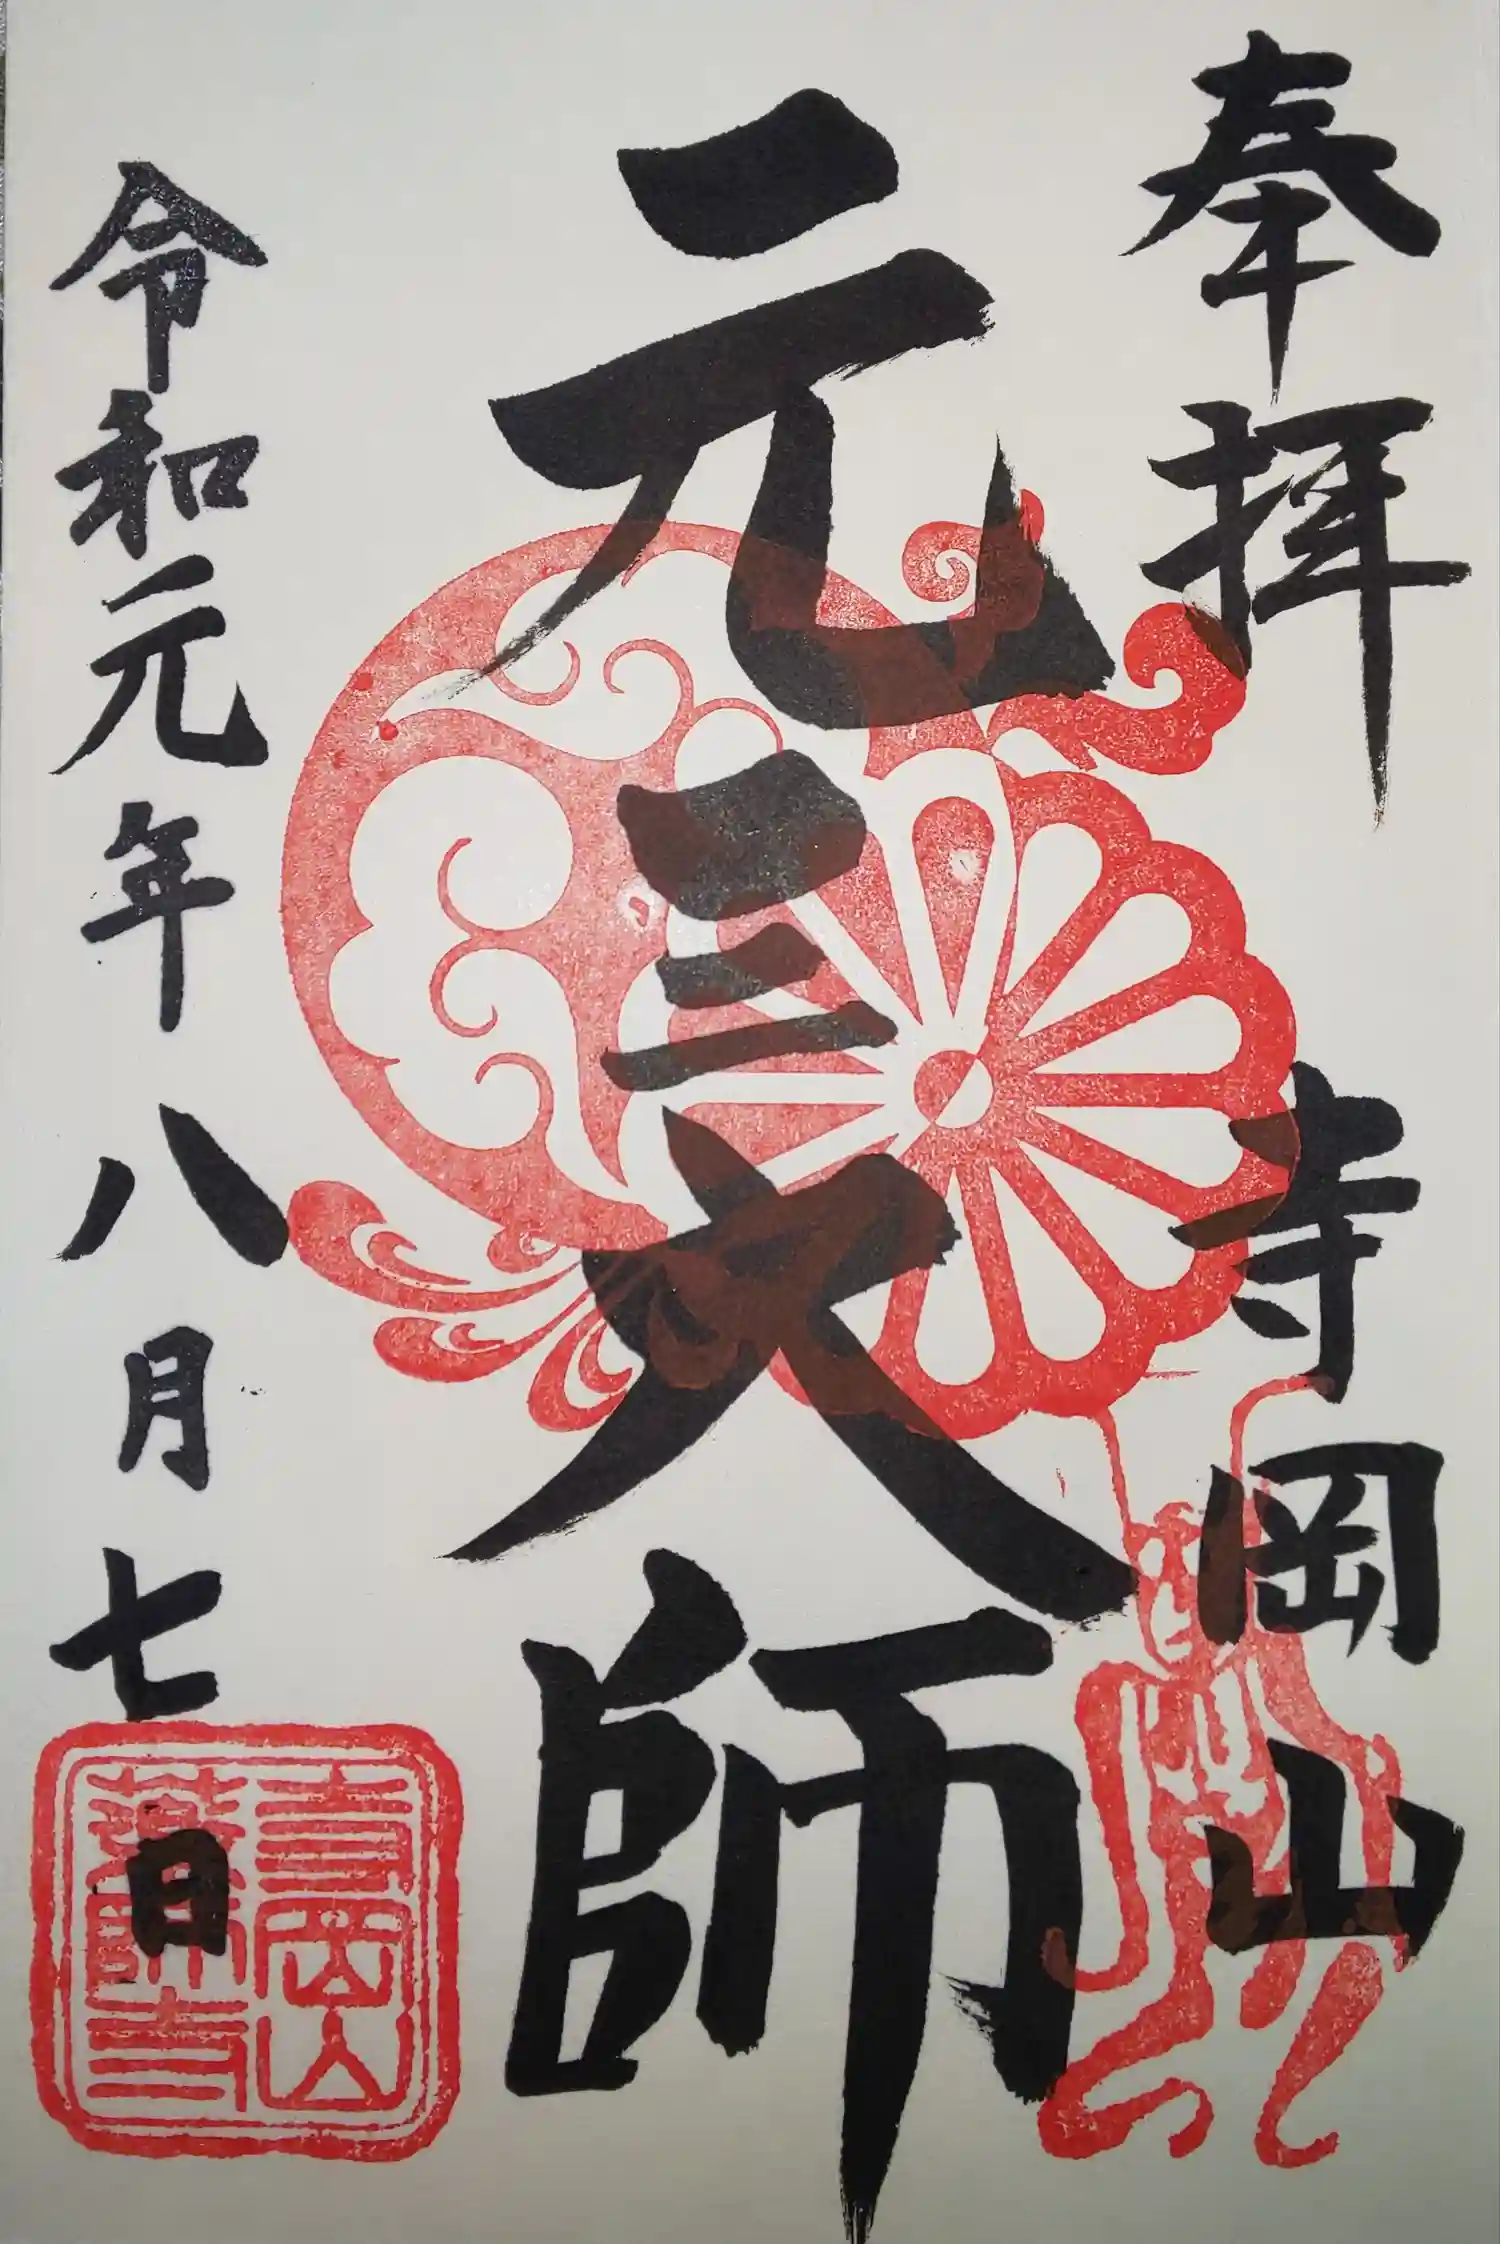 奉拝
寺岡山
元三大師
令和元年八月七日
寺岡山
薬師寺